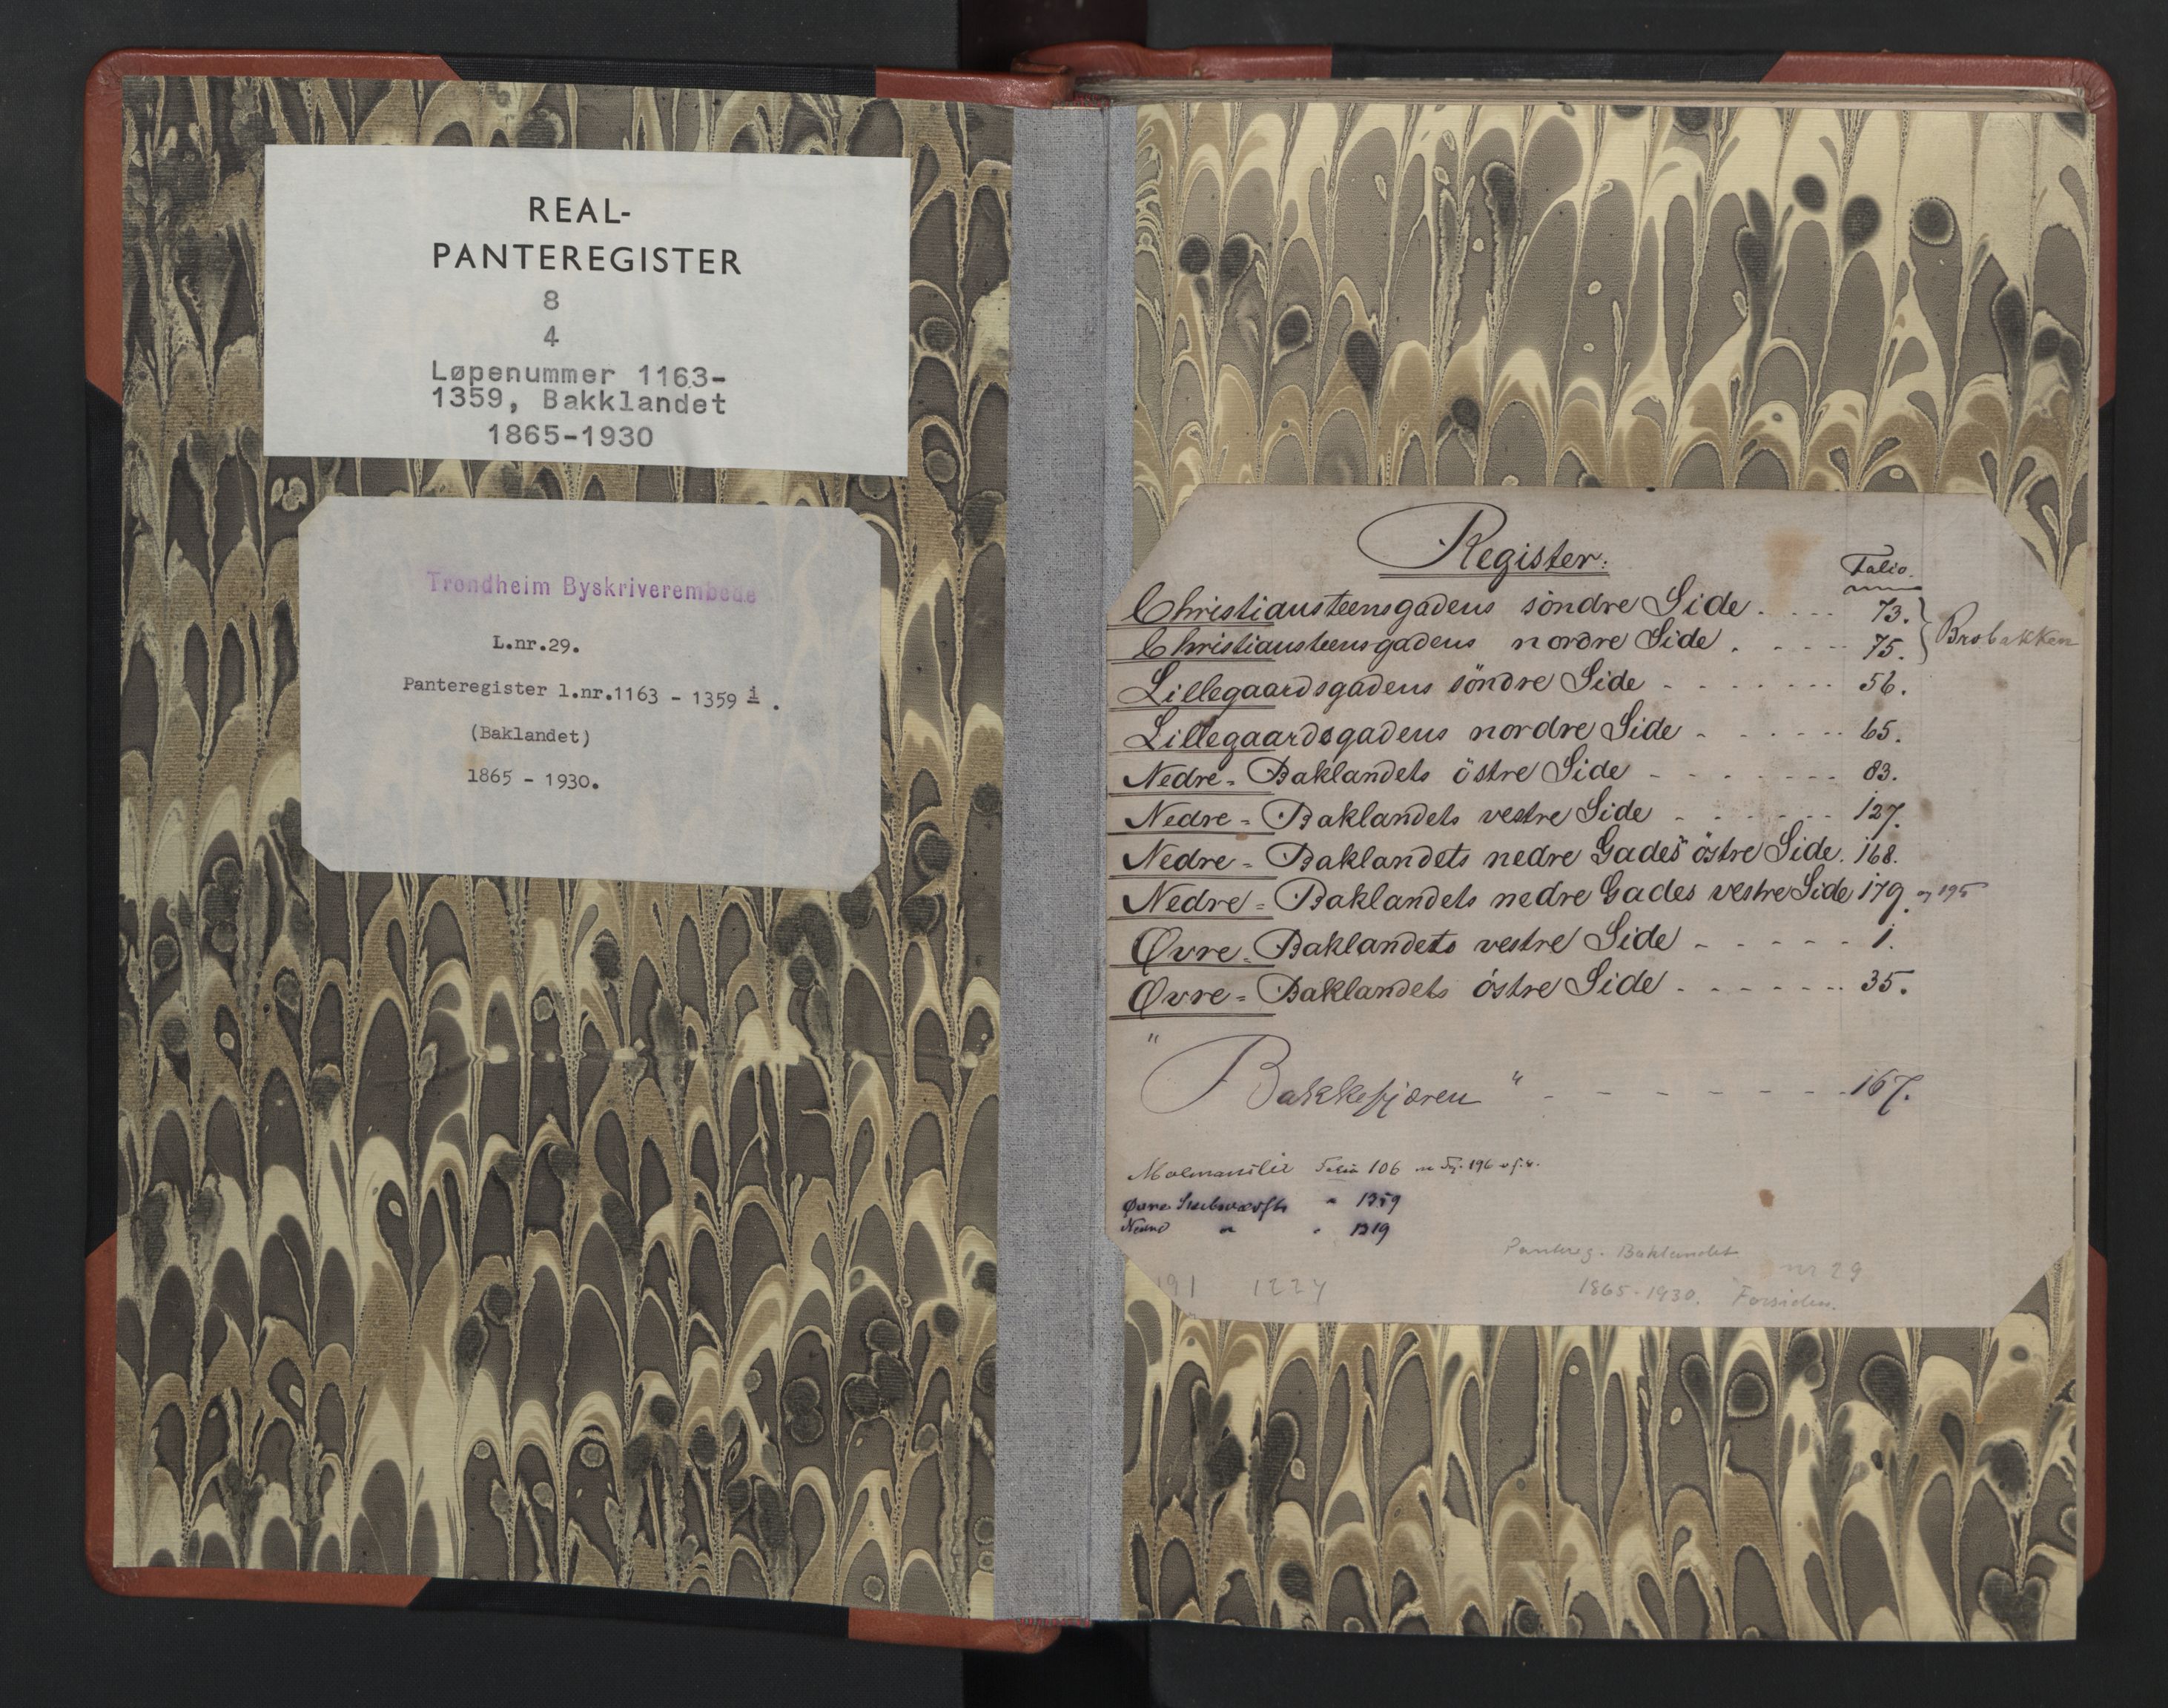 REAL-
PANTEREGISTER
8
4
Løpenummer 1163-
1359, Bakklandet
1865-1930
Trondheim Byskriverembede
L.nr.29.
Panteregister l.nr.1163 - 1359 i .
(Baklandet)
1865 - 1930.
Register:
Folio.
Christiansteensgadens söndre Side . . . . 73.
Christiansteensgadens nordre Side . - - - - 75. } Brobakken
Lillegaardsgadens söndre Side - - - - - - - 56.
Lillegaardsgadens nordre Side - - - - - - 65.
Nedre - Baklandets östre Side - - - - - - - 83.
Nedre - Baklandets vestre Side - - - - - - 127.
Nedre - Baklandets nedre Gades östre Side. 168.
Nedre - Baklandets nedre Gades vestre Side 179. og 195
Øvre - Baklandets vestre Side - - - - - 1.
Øvre - Baklandets östre Side - - - - - - 35.
" Bakkefjæren " - - - - - - - 167.
Folio 106 196
Øvre 1359
Nedre " " 1319
Pantreg. Baklandet
nr 29
191 1224
1865-1930. Forsiden.